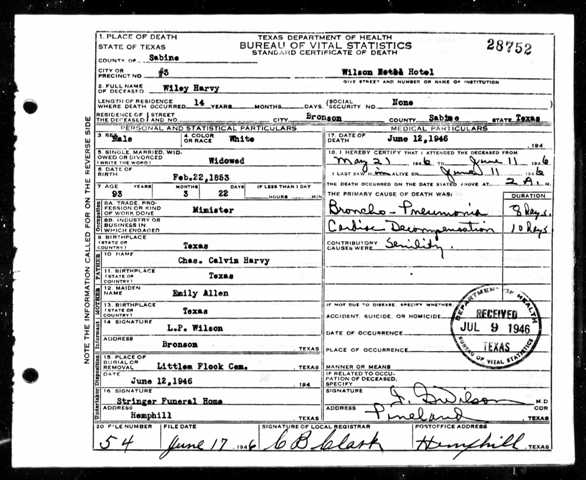 1. PLACE OF DEATH
STATE OF TEXAS
TEXAS DEPARTMENT OF HEALTH
BUREAU OF VITAL STATISTICS
STANDARD CERTIFICATE OF DEATH
28752
COUNTY OF Sabine
CITY OR PRECINCT NO. #3 Wilson Hotel
GIVE STREET AND NUMBER OR NAME OF INSTITUTION
2. FULL NAME OF DECEASED Wiley Harvy
LENGTH OF RESIDENCE WHERE DEATH OCCURRED 14 YEARS MONTHS DAYS (SOCIAL SECURITY NO. None
RESIDENCE OF THE DECEASED STREET AND NO. CITY Bronson COUNTY Sabine STATE Texas
PERSONAL AND STATISTICAL PARTICULARS
3. SEX Male
4. COLOR OR RACE White
5. SINGLE, MARRIED, WIDOWED OR DIVORCED (WRITE THE WORD) Widowed
6. DATE OF BIRTH Feb.22,1853
7. AGE YEARS MONTHS DAYS IF LESS THAN 1 DAY
93 3 22 HOURS MIN
8A. TRADE, PROFESSION OR KIND OF WORK DONE Minister
8B. INDUSTRY OR BUSINESS IN WHICH ENGAGED
9. BIRTHPLACE (STATE OR COUNTRY) Texas
FATHER
10. NAME Chas. Calvin Harvy
11. BIRTHPLACE (STATE OR COUNTRY) Texas
MOTHER
12. MAIDEN NAME Emily Allen
13. BIRTHPLACE (STATE OR COUNTRY) Texas
Informant
14. SIGNATURE L.P. Wilson
ADDRESS Bronson TEXAS
15. PLACE OF BURIAL OR REMOVAL Littlem Flock Cem. TEXAS
DATE June 12,1946 194
16. SIGNATURE Stringer Funeral Home
ADDRESS Hemphill TEXAS
MEDICAL PARTICULARS
17. DATE OF DEATH June 12,1946 194
18. I HEREBY CERTIFY THAT I ATTENDED THE DECEASED FROM
May 21 1946 TO June 11 1946
I LAST SAW him ALIVE ON June 11 1946
THE DEATH OCCURRED ON THE DATE STATED ABOVE AT 2 A. M.
THE PRIMARY CAUSE OF DEATH WAS: DURATION
Broncho-Pneumonia 8 Days.
Cardiac Decompensation 10 Days.
CONTRIBUTORY CAUSES WERE: Senility.
IF NOT DUE TO DISEASE, SPECIFY WHETHER
ACCIDENT, SUICIDE, OR HOMICIDE
DATE OF OCCURRENCE
PLACE OF OCCURRENCE
MANNER OR MEANS
IF RELATED TO OCCUPATION OF DECEASED, SPECIFY
SIGNATURE Wilson M.D.
ADDRESS Pineland COR TEXAS
DEPARTMENT OF HEALTH
RECEIVED
JUL 9 1946
TEXAS
BUREAU OF VITAL STATISTICS
20 FILE NUMBER FILE DATE SIGNATURE OF LOCAL REGISTRAR POSTOFFICE ADDRESS
54 June 17 1946 C B Clark Hemphill, TEXAS
NOTE THE INFORMATION CALLED FOR ON THE REVERSE SIDE